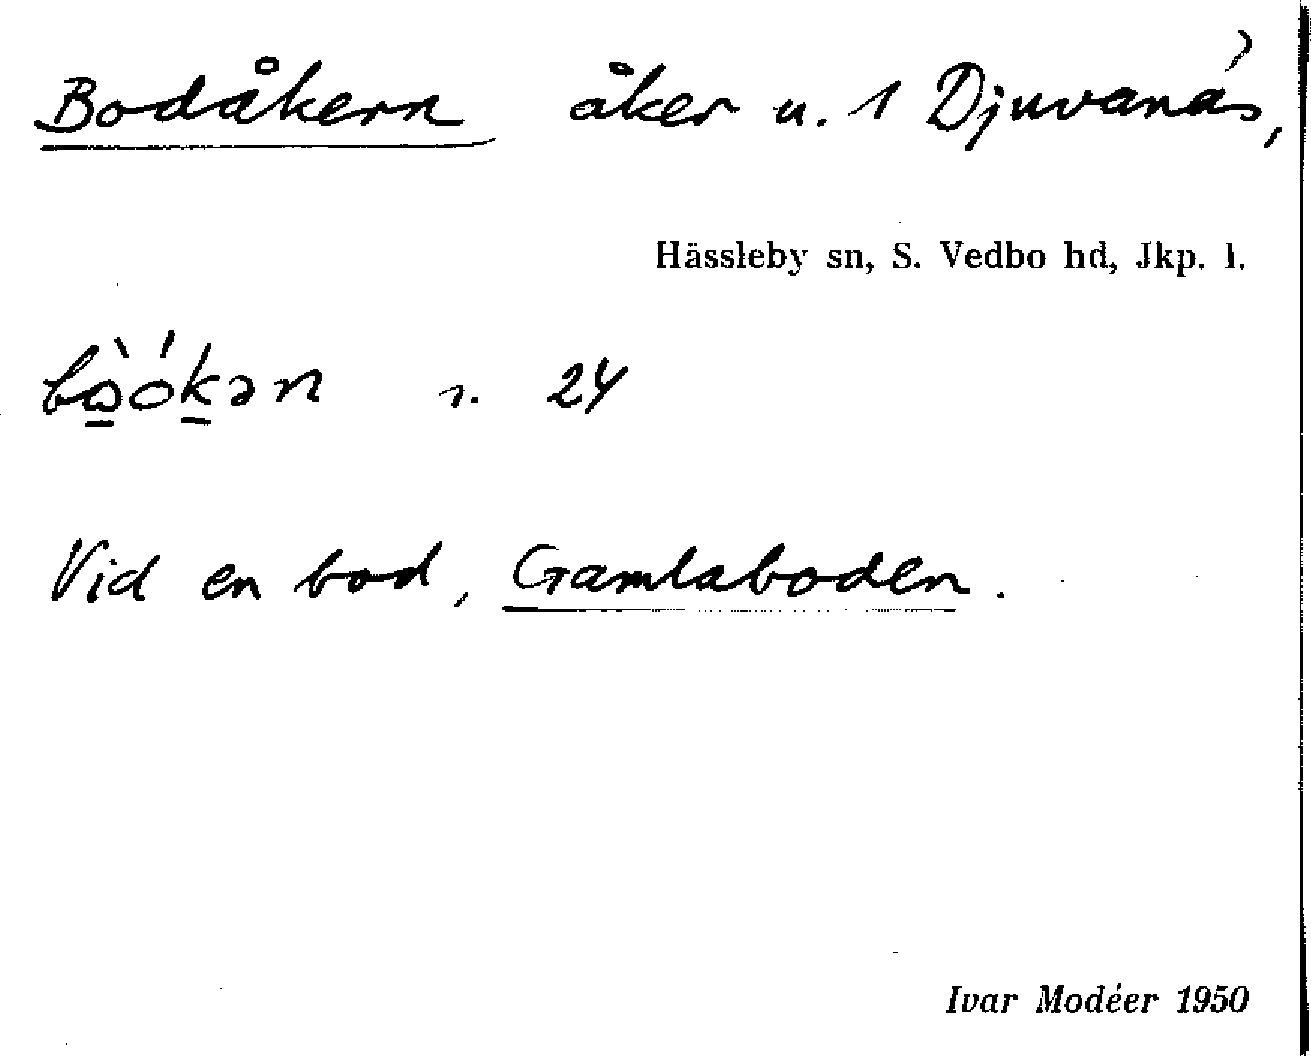 Bodåkern åker u. 1 Djuvanäs,
Hässleby sn, S. Vedbo hd, Jkp. l.
24
Vid en bod, Gamlaboden.
Ivar Modéer 1950